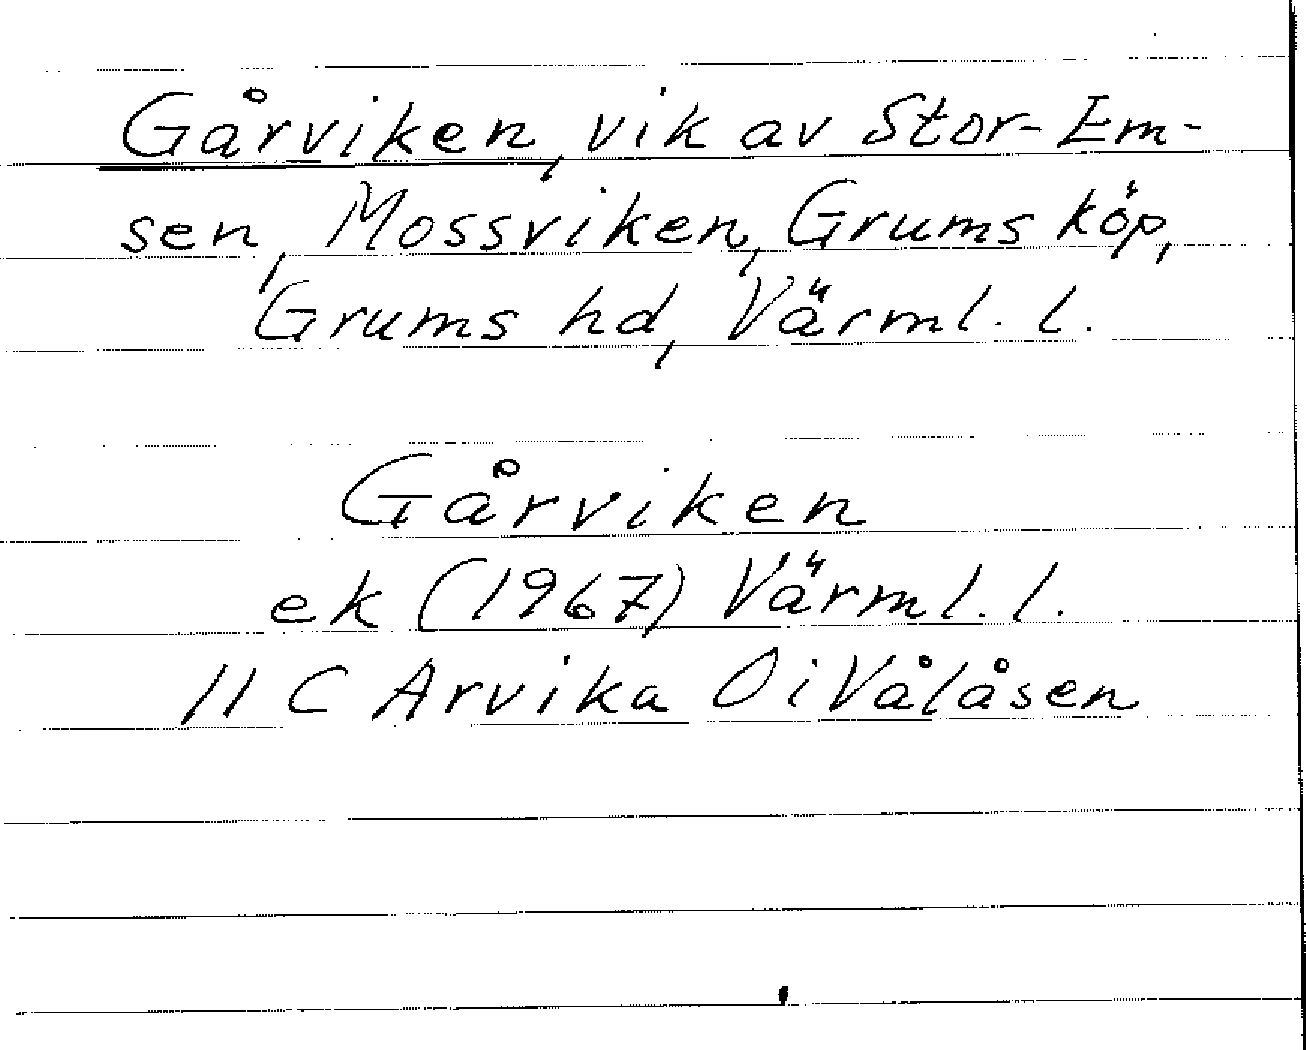 Gårviken, vik av Stor-Em-
sen, Mossviken, Grums köp,
Grums hd, Värml. l.
Gårviken
ek (1967) Värml. l.
11 C Arvika 0 i Vålåsen